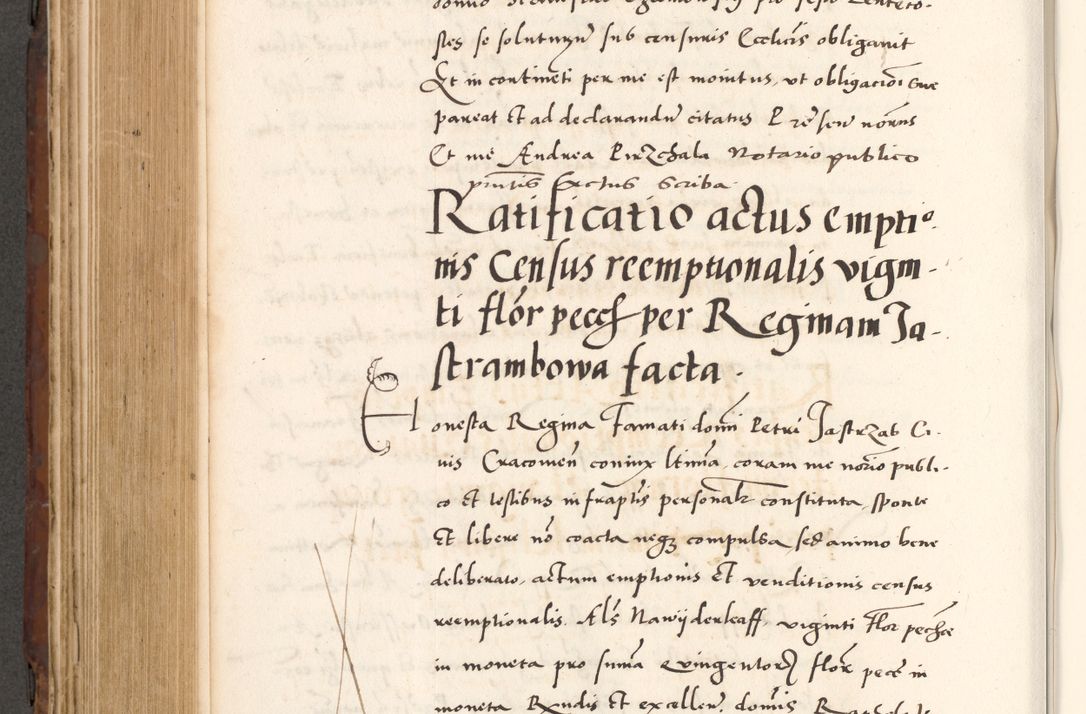 stes se soluturum sub censuris Ecclicis obligavit
Et in contineti per me est monitus, ut obligacioi sue
pareat Et ad declarandu citatus P re sen norus
Et me Andrea Pirzchala Notario publico
pntis Actus Scriba
Ratificatio actus emptio-
nis Census reemptionalis vigin-
ti flor pecc per Reginam Ja-
strambowa facta.
Honesta Regina Famati domi Petri Jastrzab Ci-
vis Cracovien coniux ltima, coram me norio publi-
co et testibus infraptis personalr constituta, sponte
Et libere no coacta neqz compulsa sed animo bene
deliberato, actum emptionis Et venditionis census
reemptionalis. Als Nawijderkaff, viginti Flor pecclie
in moneta pro suma Quingentor flor pece in
moneta Rndis Et excellen. domis